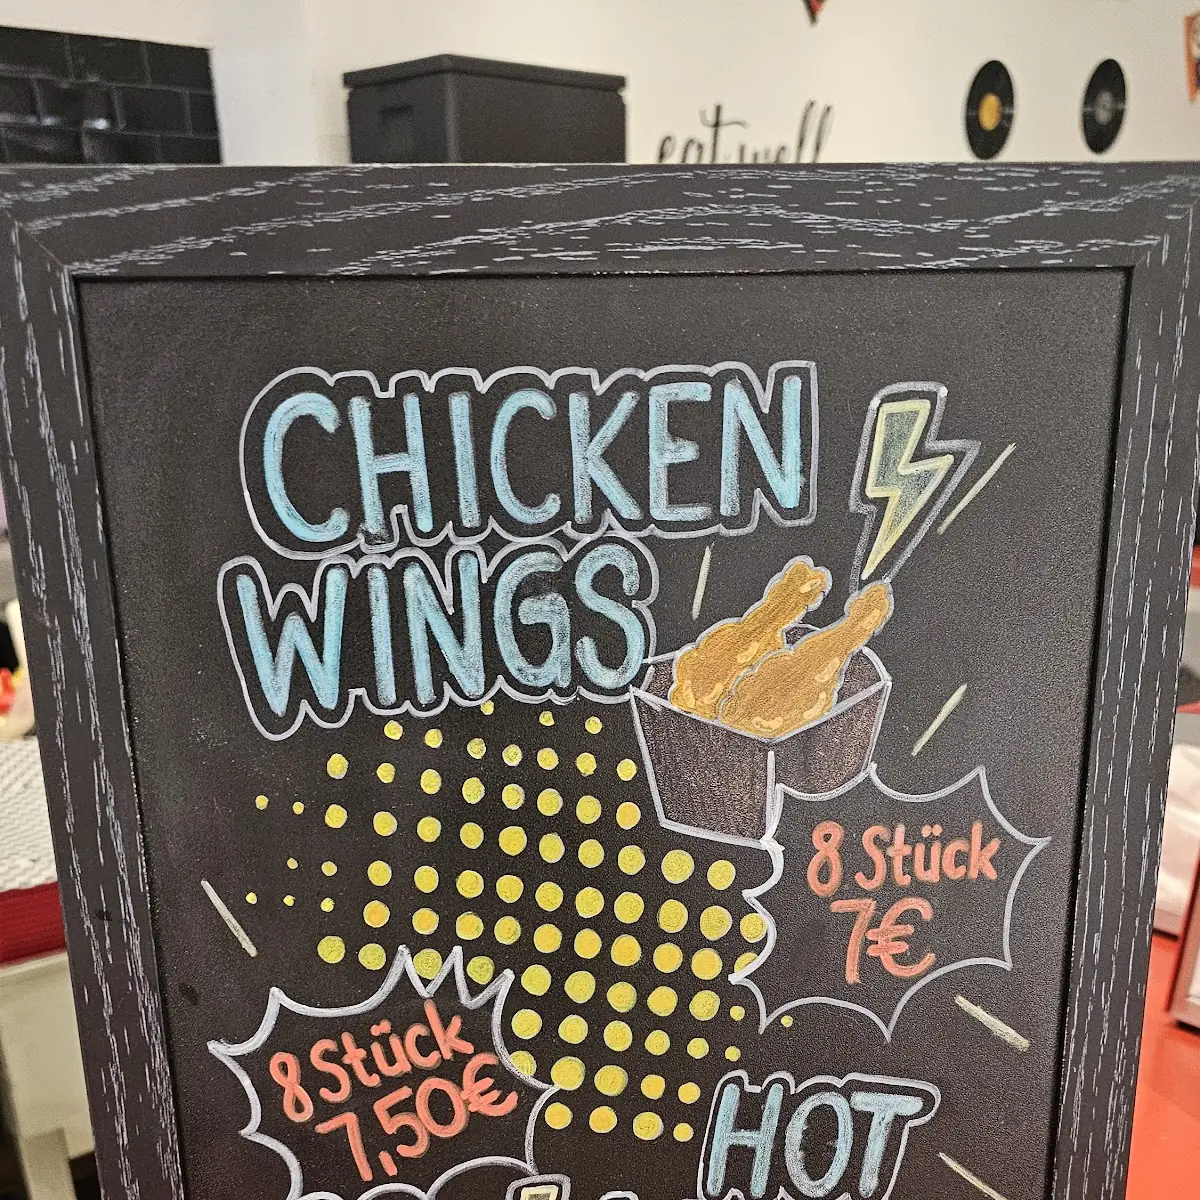 eat well
CHICKEN
WINGS
8 Stück
7€
8 Stück
7,50€
HOT